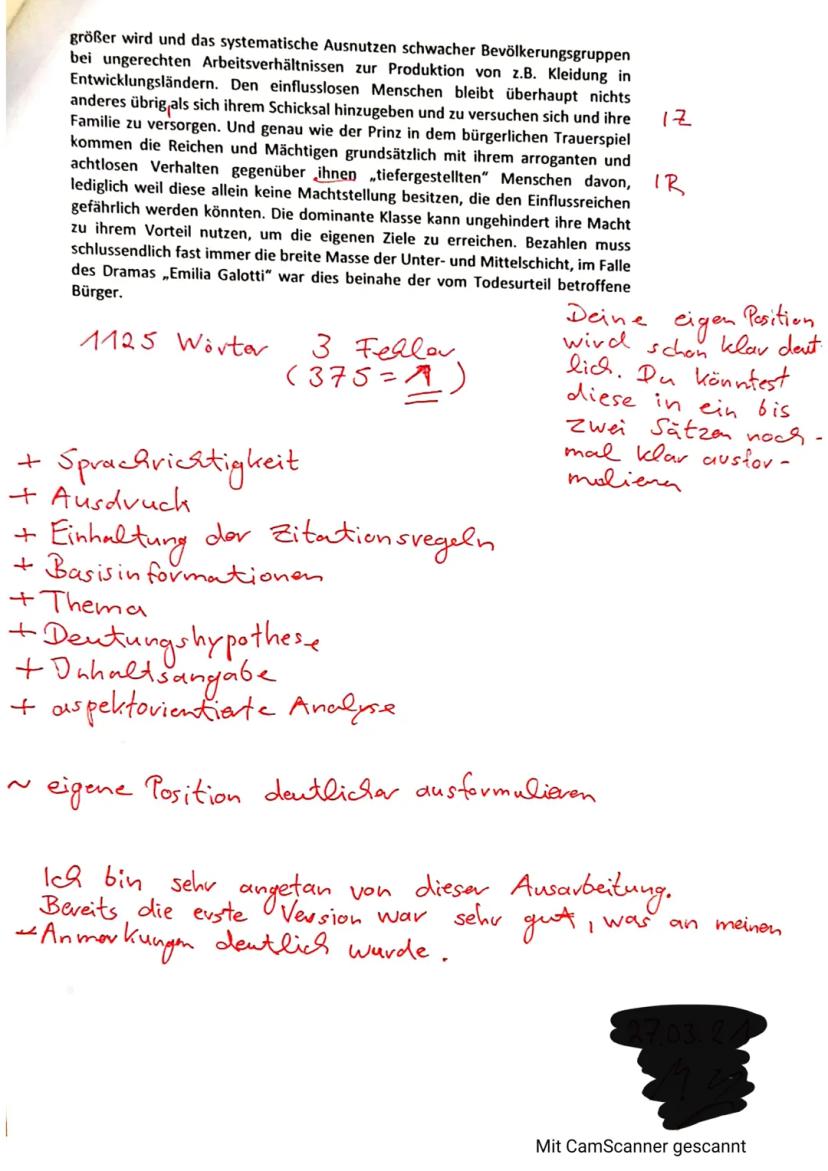 größer wird und das systematische Ausnutzen schwacher Bevölkerungsgruppen
bei ungerechten Arbeitsverhältnissen zur Produktion von z.B. Kleidung in
Entwicklungsländern. Den einflusslosen Menschen bleibt überhaupt nichts
anderes übrig,als sich ihrem Schicksal hinzugeben und zu versuchen sich und ihre
Familie zu versorgen. Und genau wie der Prinz in dem bürgerlichen Trauerspiel
kommen die Reichen und Mächtigen grundsätzlich mit ihrem arroganten und
achtlosen Verhalten gegenüber ihnen „tiefergestellten“ Menschen davon,
lediglich weil diese allein keine Machtstellung besitzen, die den Einflussreichen
gefährlich werden könnten. Die dominante Klasse kann ungehindert ihre Macht
zu ihrem Vorteil nutzen, um die eigenen Ziele zu erreichen. Bezahlen muss
schlussendlich fast immer die breite Masse der Unter- und Mittelschicht, im Falle
des Dramas „Emilia Galotti“ war dies beinahe der vom Todesurteil betroffene
Bürger.
IZ
IR
Deine eigen Position
wird schon klar deut-
lich. Du könntest
diese in ein bis
zwei Sätzen noch-
mal klar ausfor-
mulieren
1125 Wörter 3 Fehler
(375 = 1)
+ Sprachrichtigkeit
+ Ausdruck
+ Einhaltung der Zitationsregeln
+ Basisinformationen
+ Thema
+ Deutungshypothese
+ Inhaltsangabe
+ aspektorientierte Analyse
~ eigene Position deutlicher ausformulieren
Ich bin sehr angetan von dieser Ausarbeitung.
Bereits die erste Version war sehr gut, was an meinen
Anmerkungen deutlich wurde.
27.03.21
Mit CamScanner gescannt